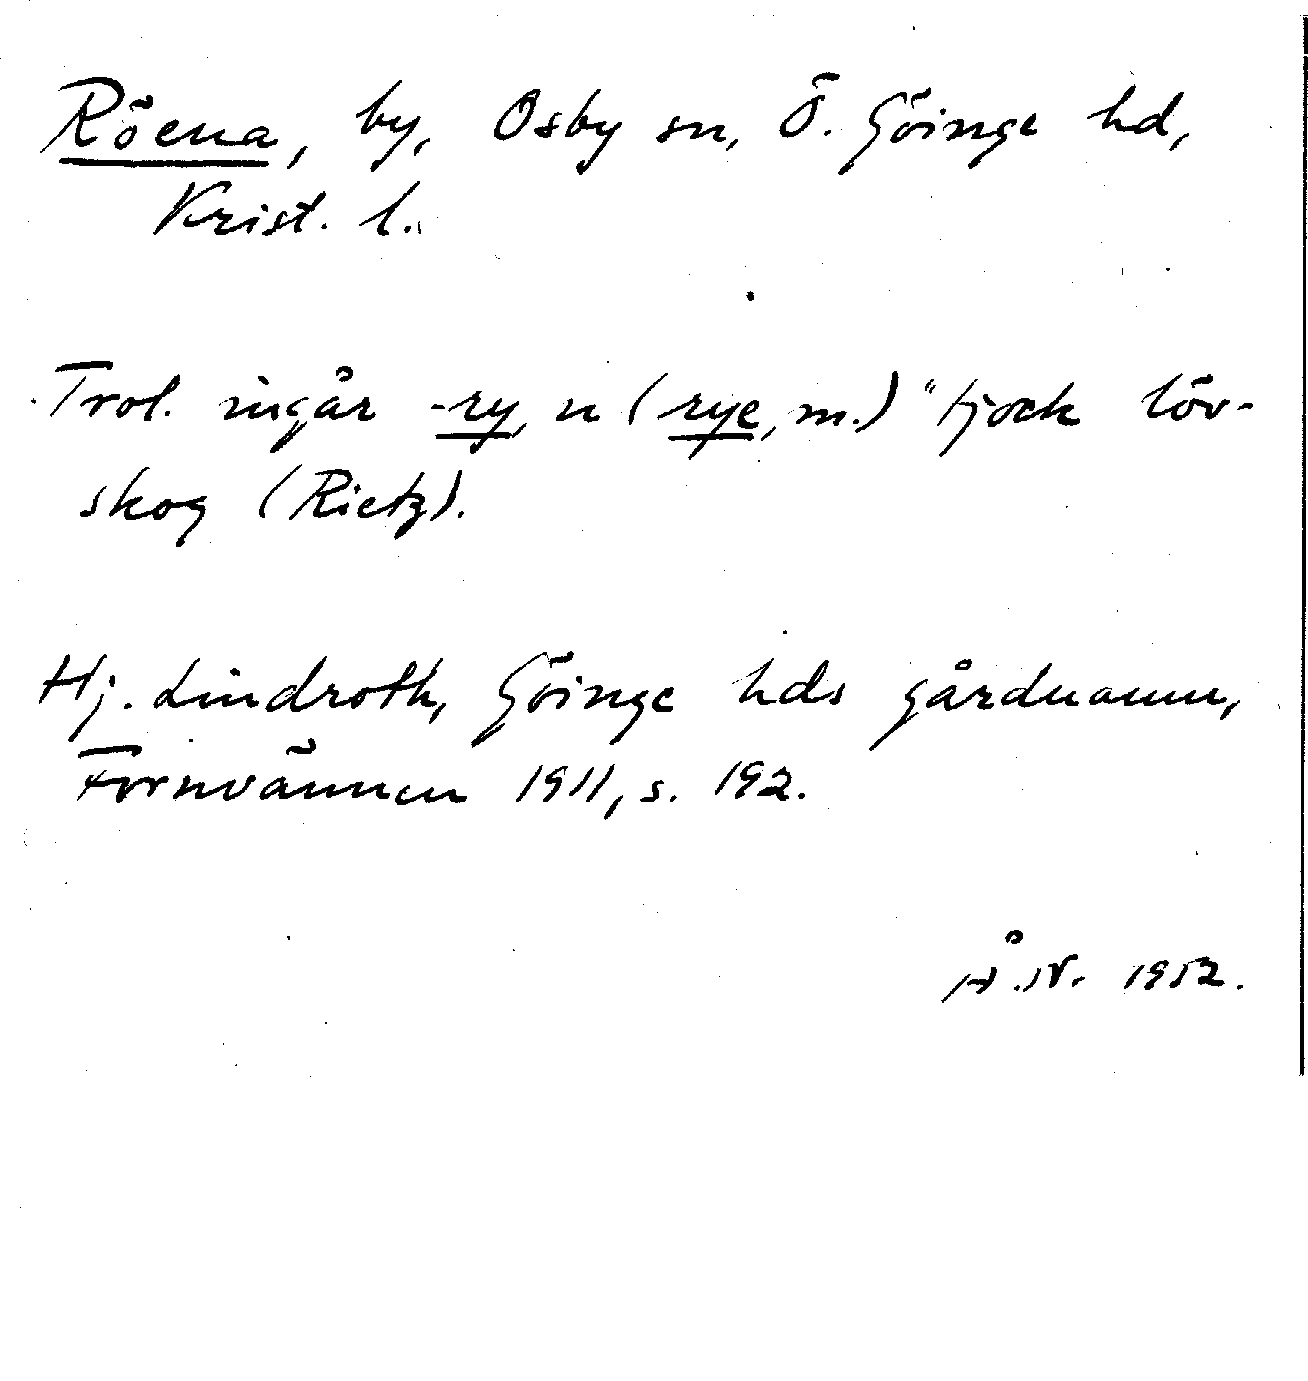 Röena, by, Osby sn, Ö. Göinge hd,
Krist. l.
Trol. ingår -ry, n (rye, m.) "tjock löv-
skog (Rietz).
Hj. Lindroth, Göinge hds gårdnamn,
Fornvännen 1911, s. 192.
Å.N. 1952.